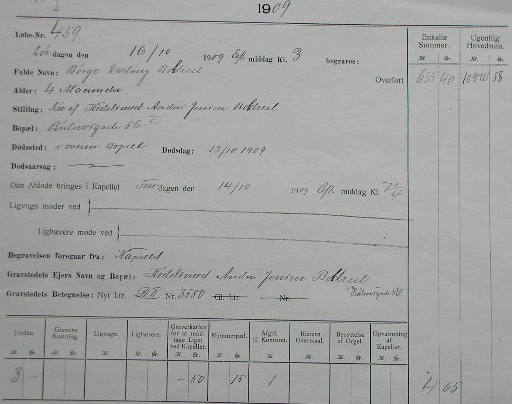 1909
Løbe-Nr. 459
Løvdagen den 16/10 1909 Eft middag Kl. 3 begraves:
Enkelte Summer. Ugentlig Hovedsum.
Kr. Ør. Kr. Ør.
Fulde Navn: Børge
Overført 635 40 58
Alder: 4 Maaneder
Stilling: Søn af Kedelsmed Andor Jensen
Bopæl: 56
Dødssted: ovenn. Bopæl Dødsdag: 13/10 1909
Dødsaarsag:
Den Afdøde bringes i Kapellet Torsdagen den 14/10 1909 Eft. middag Kl. 7 1/4
Ligvogn møder ved
Ligbærere møde ved
Begravelsen foregaar fra: Kapellet
Gravstedets Ejers Navn og Bopæl: Kedelsmed Andor Jensen
Gravstedets Betegnelse: Nyt Ltr. Nr. 3580 Gl. Ltr. Nr.
Jorden. Gravens Kastning. Ligvogn. Ligbærere. Graverkarlen for at modtage Liget ved Kapellet. Nummerpæl. Afgift til Kontoret. Kistens Overmaal. Benyttelse af Orgel. Opvarmning af Kapellet.
Kr. Ør. Kr. Ør. Kr. Ør. Kr. Ør. Kr. Ør. Kr. Ør. Kr. Ør. Kr. Ør. Kr. Ør. Kr. Ør.
3 - - 50 15 1 4 65